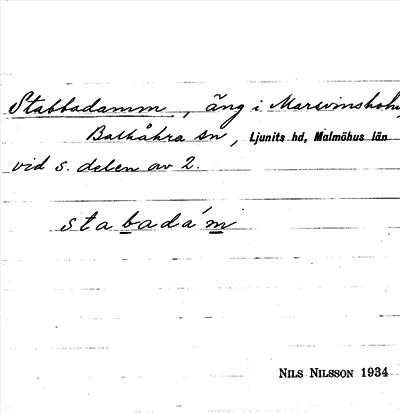 Stabbadamm, äng i Marsvinsholm,
Balkåkra sn, Ljunits hd, Malmöhus län
vid s. delen av 2.
stabadám
NILS NILSSON 1934